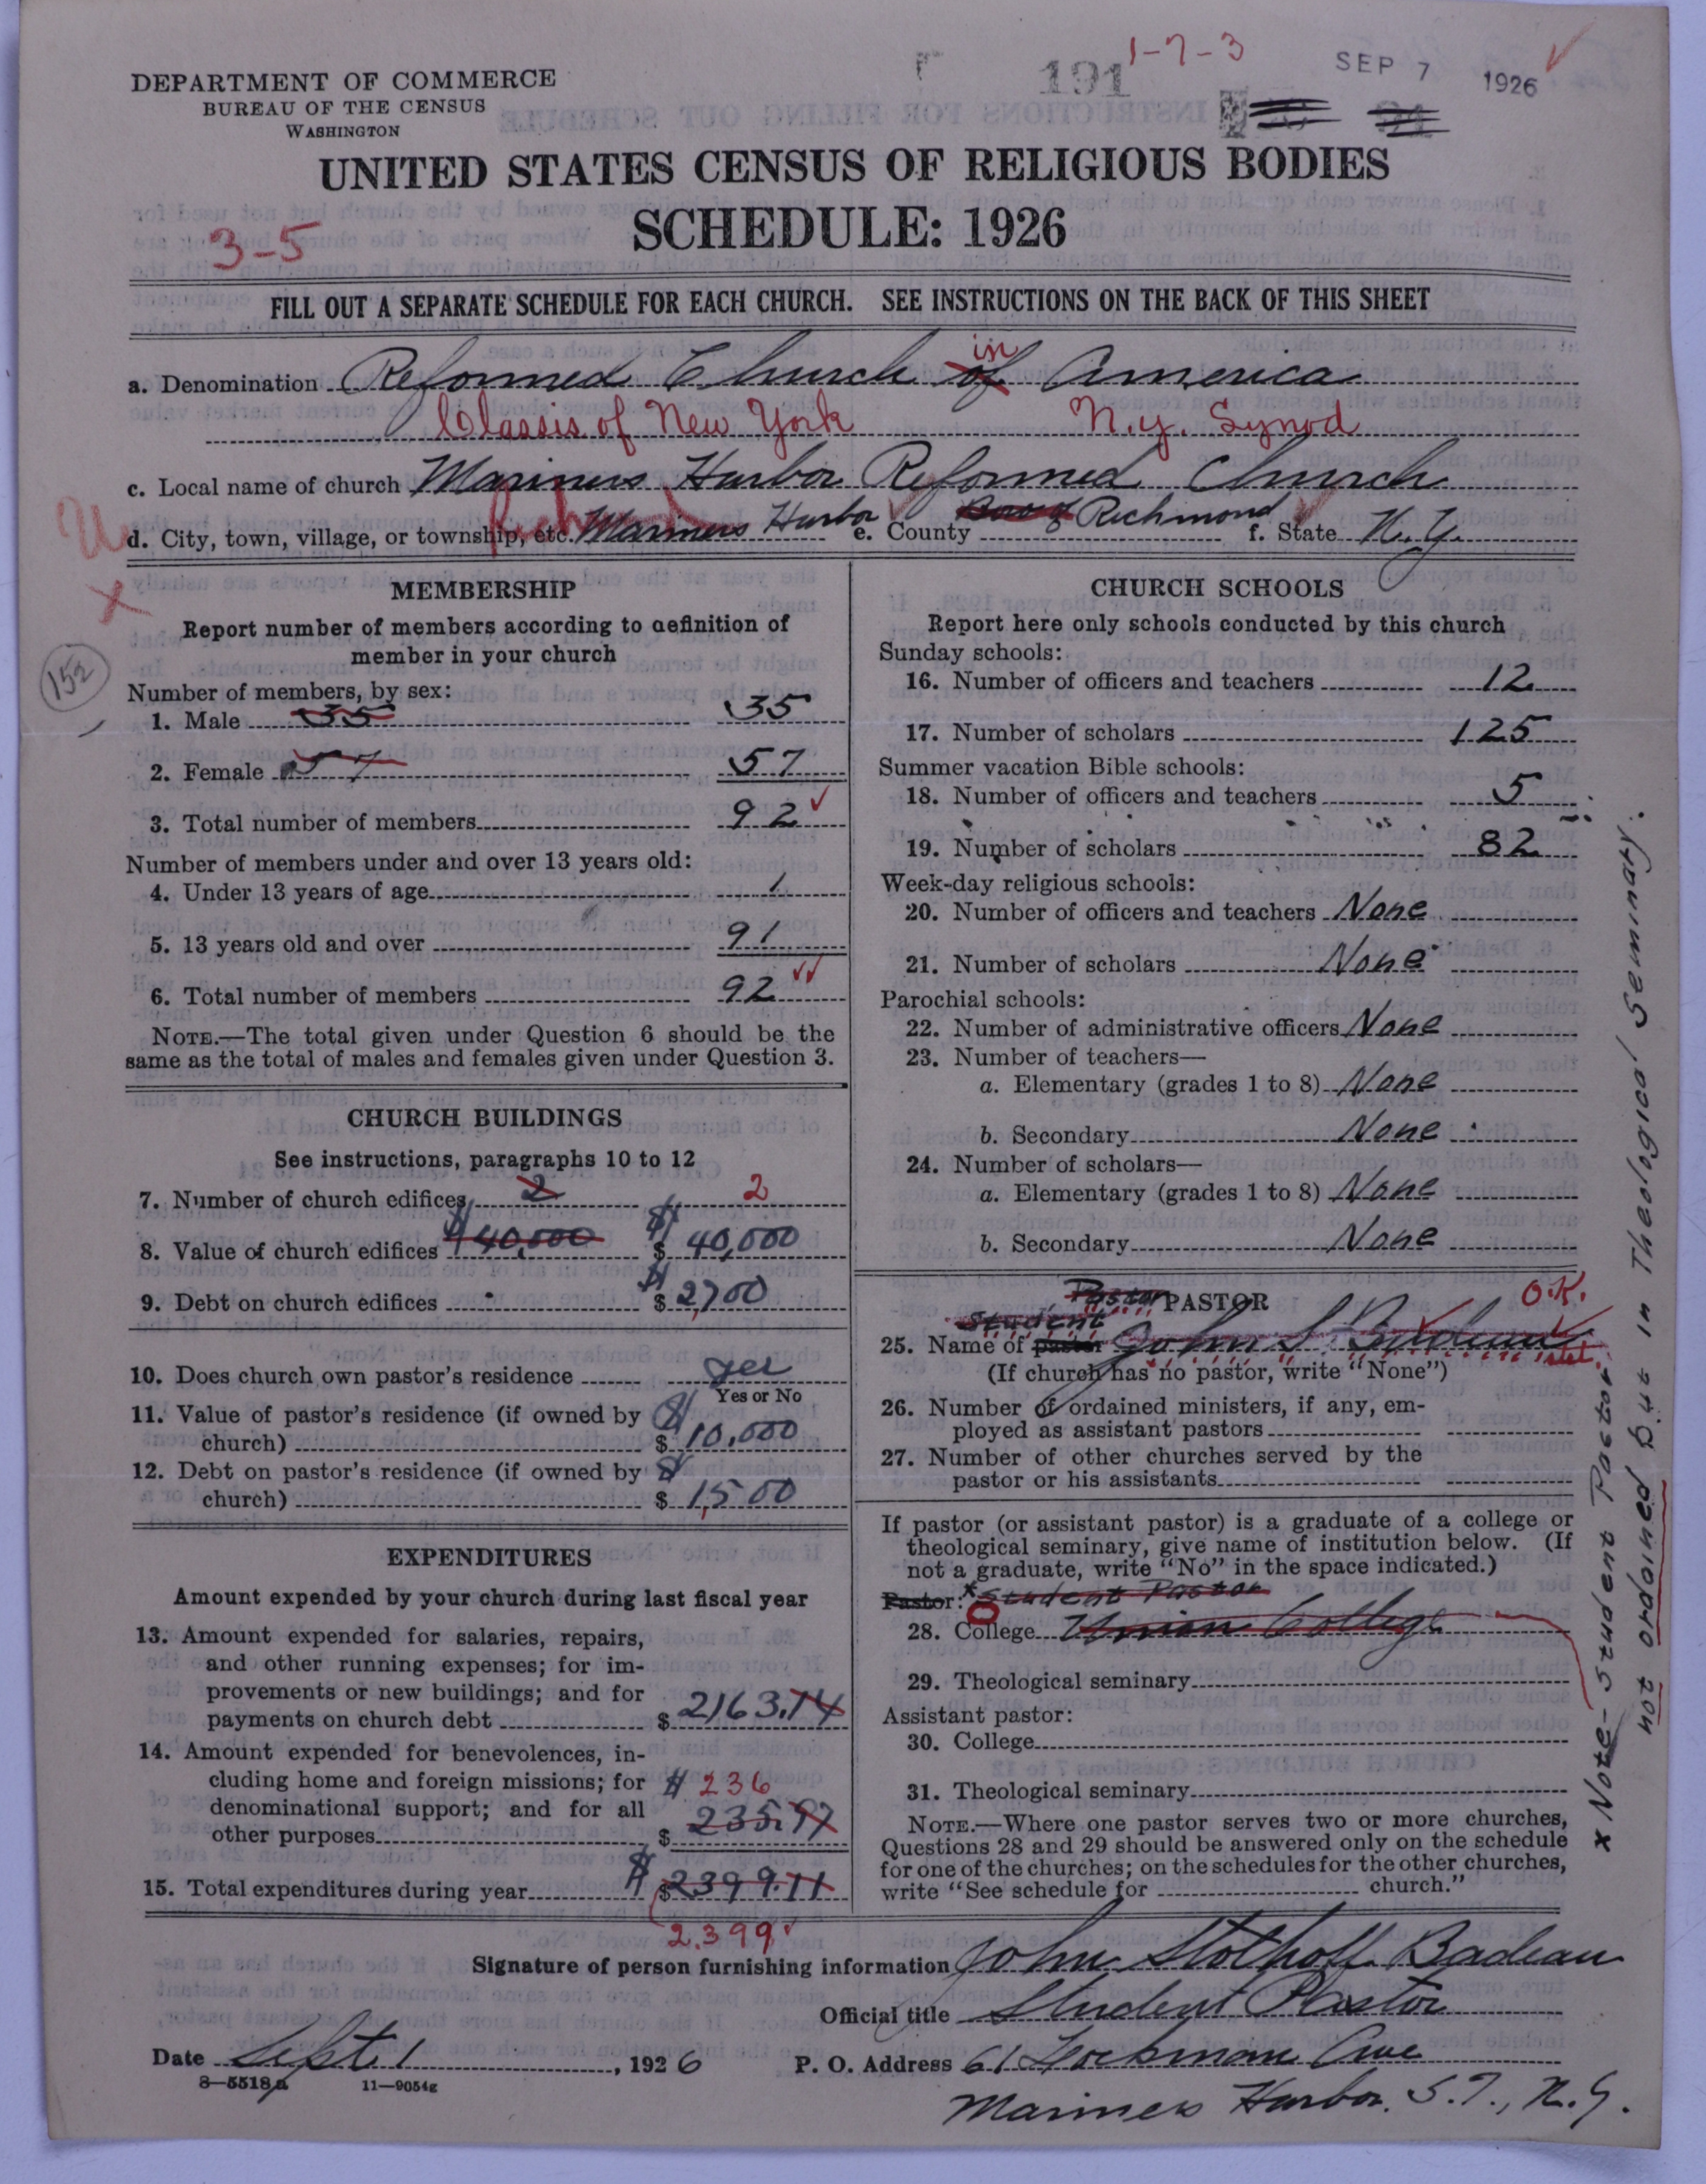 191 1-7-3 SEP 7 1926
DEPARTMENT OF COMMERCE
BUREAU OF THE CENSUS
WASHINGTON
UNITED STATES CENSUS OF RELIGIOUS BODIES
SCHEDULE: 1926
3-5
FILL OUT A SEPARATE SCHEDULE FOR EACH CHURCH. SEE INSTRUCTIONS ON THE BACK OF THIS SHEET
in
a. Denomination Reformed Church of America
Classis of New York N.Y. Synod
c. Local name of church Mariners Harbor Reformed Church
Richmond
d. City, town, village, or township, etc. Mariners Harbor e. County Boro of Richmond f. State N.Y.
U
X
152
MEMBERSHIP
Report number of members according to definition of
member in your church
Number of members, by sex:
1. Male 35 35
2. Female 57 57
3. Total number of members 92
Number of members under and over 13 years old:
4. Under 13 years of age 1
5. 13 years old and over 91
6. Total number of members 92
NOTE.—The total given under Question 6 should be the
same as the total of males and females given under Question 3.
CHURCH BUILDINGS
See instructions, paragraphs 10 to 12
7. Number of church edifices 2 2
8. Value of church edifices $40,000 $ 40,000
9. Debt on church edifices $ 2,700
10. Does church own pastor's residence yes
Yes or No
11. Value of pastor's residence (if owned by
church) $ 10,000
12. Debt on pastor's residence (if owned by
church) $ 1,500
EXPENDITURES
Amount expended by your church during last fiscal year
13. Amount expended for salaries, repairs,
and other running expenses; for im-
provements or new buildings; and for
payments on church debt $ 2163.14
14. Amount expended for benevolences, in-
cluding home and foreign missions; for $ 236
denominational support; and for all
other purposes $ 235.97
15. Total expenditures during year $ 2399.11
2,399
CHURCH SCHOOLS
Report here only schools conducted by this church
Sunday schools:
16. Number of officers and teachers 12
17. Number of scholars 125
Summer vacation Bible schools:
18. Number of officers and teachers 5
19. Number of scholars 82
Week-day religious schools:
20. Number of officers and teachers None
21. Number of scholars None
Parochial schools:
22. Number of administrative officers None
23. Number of teachers—
a. Elementary (grades 1 to 8) None
b. Secondary None
24. Number of scholars—
a. Elementary (grades 1 to 8) None
b. Secondary None
Pastor PASTOR O.K.
Student
25. Name of pastor John S. Badeau stet.
(If church has no pastor, write "None")
26. Number of ordained ministers, if any, em-
ployed as assistant pastors
27. Number of other churches served by the
pastor or his assistants
If pastor (or assistant pastor) is a graduate of a college or
theological seminary, give name of institution below. (If
not a graduate, write "No" in the space indicated.)
Pastor: x Student Pastor
28. College Union College
29. Theological seminary
Assistant pastor:
30. College
31. Theological seminary
NOTE.—Where one pastor serves two or more churches,
Questions 28 and 29 should be answered only on the schedule
for one of the churches; on the schedules for the other churches,
write "See schedule for church."
x Note - Student Pastor
not ordained But in Theological Seminary.
Signature of person furnishing information John Stothoff Badeau
Official title Student Pastor
Date Sept. 1, 1926 P. O. Address 61 Lockman Ave
8-5518a 11-9054g
Mariners Harbor, S.I., N.Y.